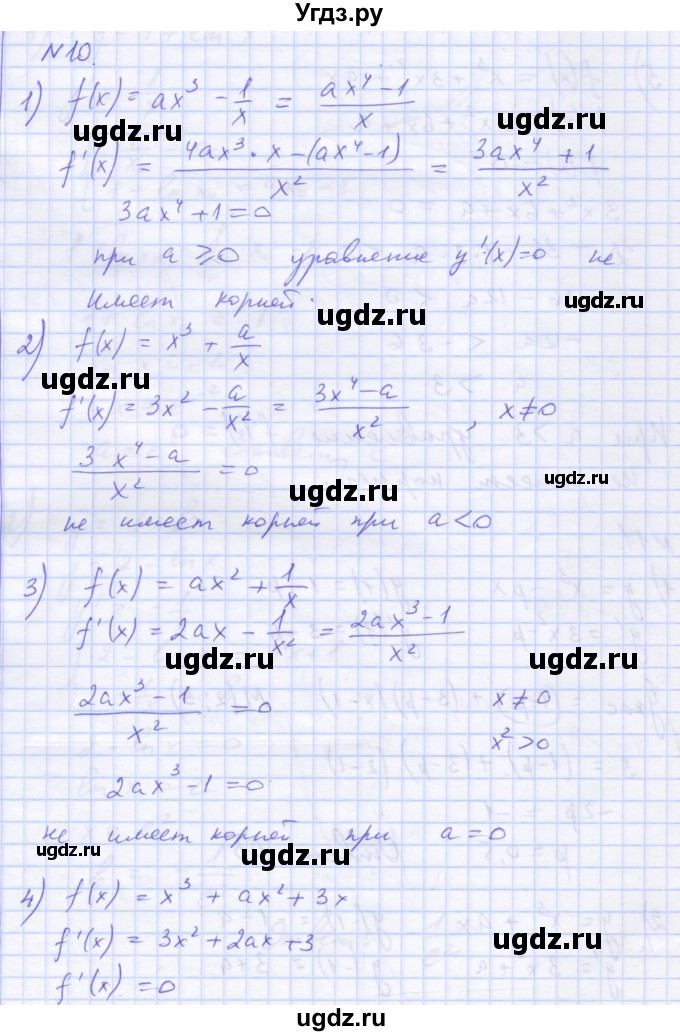 Угдз.ру
N10.
1) f(x) = ax³ - 1/x = (ax⁴-1)/x
ugdz.ru ugdz.ru
f'(x) = (4ax³·x-(ax⁴-1))/x² = (3ax⁴+1)/x²
3ax⁴+1=0
ugdz.ru
при a ⩾ 0 уравнение y'(x)=0 не
имеет корней.
ugdz.ru
2) f(x) = x³ + a/x
ugdz.ru
f'(x) = 3x² - a/x² = (3x⁴-a)/x², x≠0
ugdz.ru
(3x⁴-a)/x² = 0
ugdz.ru
ugdz.ru
не имеет корней при a<0
3) f(x) = ax² + 1/x
f'(x) = 2ax - 1/x² = (2ax³-1)/x²
ugdz.ru ugdz.ru
(2ax³-1)/x² = 0 x≠0
ugdz.ru
x²>0
2ax³-1=0
ugdz.ru
не имеет корней при a=0
ugdz.ru ugdz.ru
4) f(x) = x³ + ax² + 3x
f'(x) = 3x²+2ax+3
ugdz.ru
f'(x) = 0
ugdz.ru
ugdz.ru